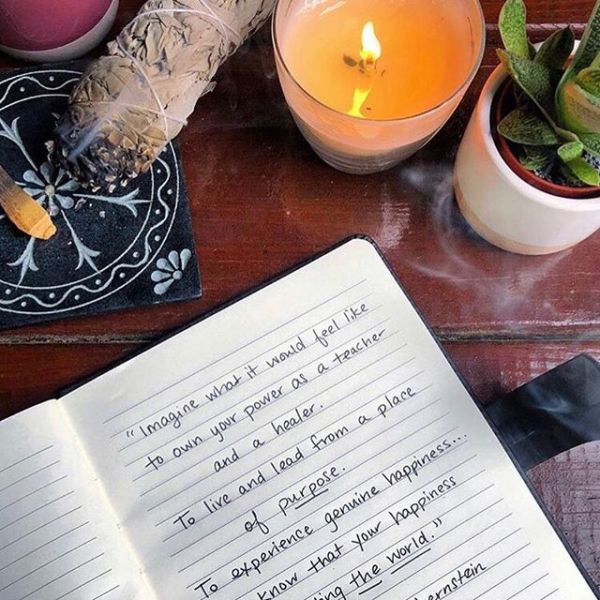 "Imagine what it would feel like
to own your power as a teacher
and a healer.
To live and lead from a place
of purpose.
To experience genuine happiness...
know that your happiness
the world."